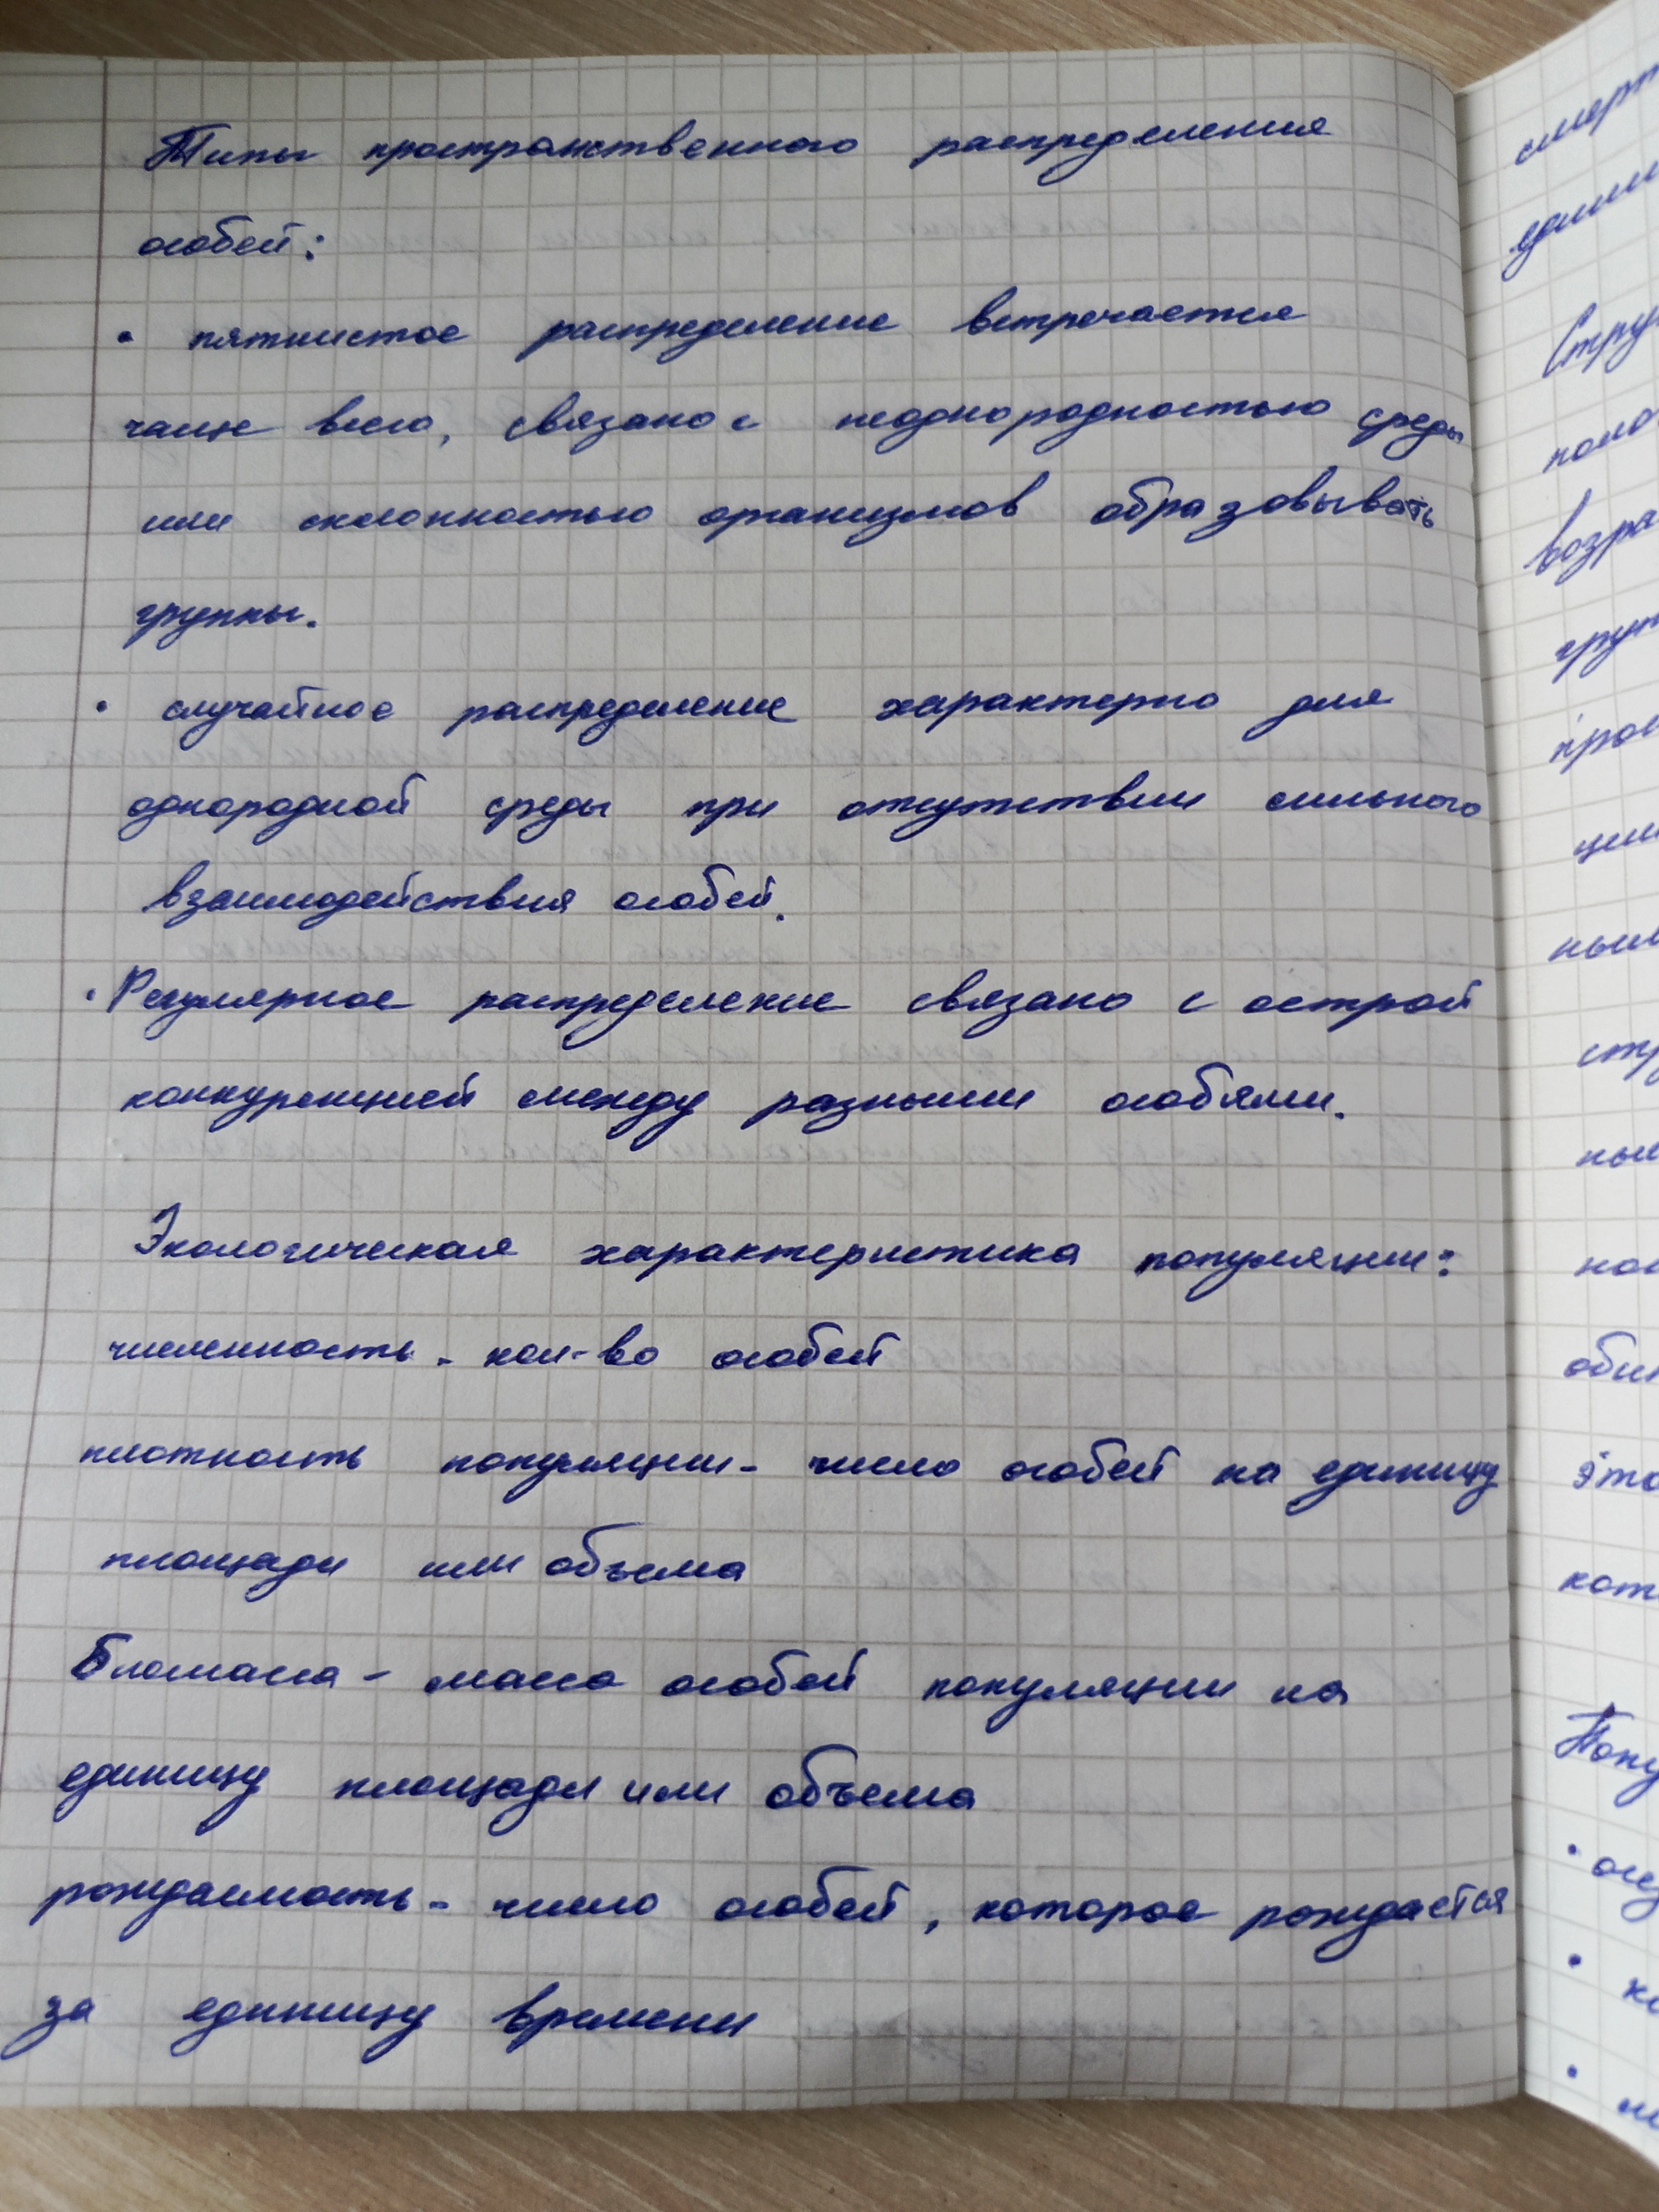 Типы пространственного распределения
особей:
• пятнистое распределение встречается
чаще всего, связано с неоднородностью среды
или склонностью организмов образовывать
группы.
• случайное распределение характерно для
однородной среды при отсутствии сильного
взаимодействия особей.
• Регулярное распределение связано с острой
конкуренцией между разными особями.
Экологическая характеристика популяции:
численность - кол-во особей
плотность популяции - число особей на единицу
площади или объема
Биомасса - масса особей популяции на
единицу площади или объема
рождаемость - число особей, которое рождается
за единицу времени